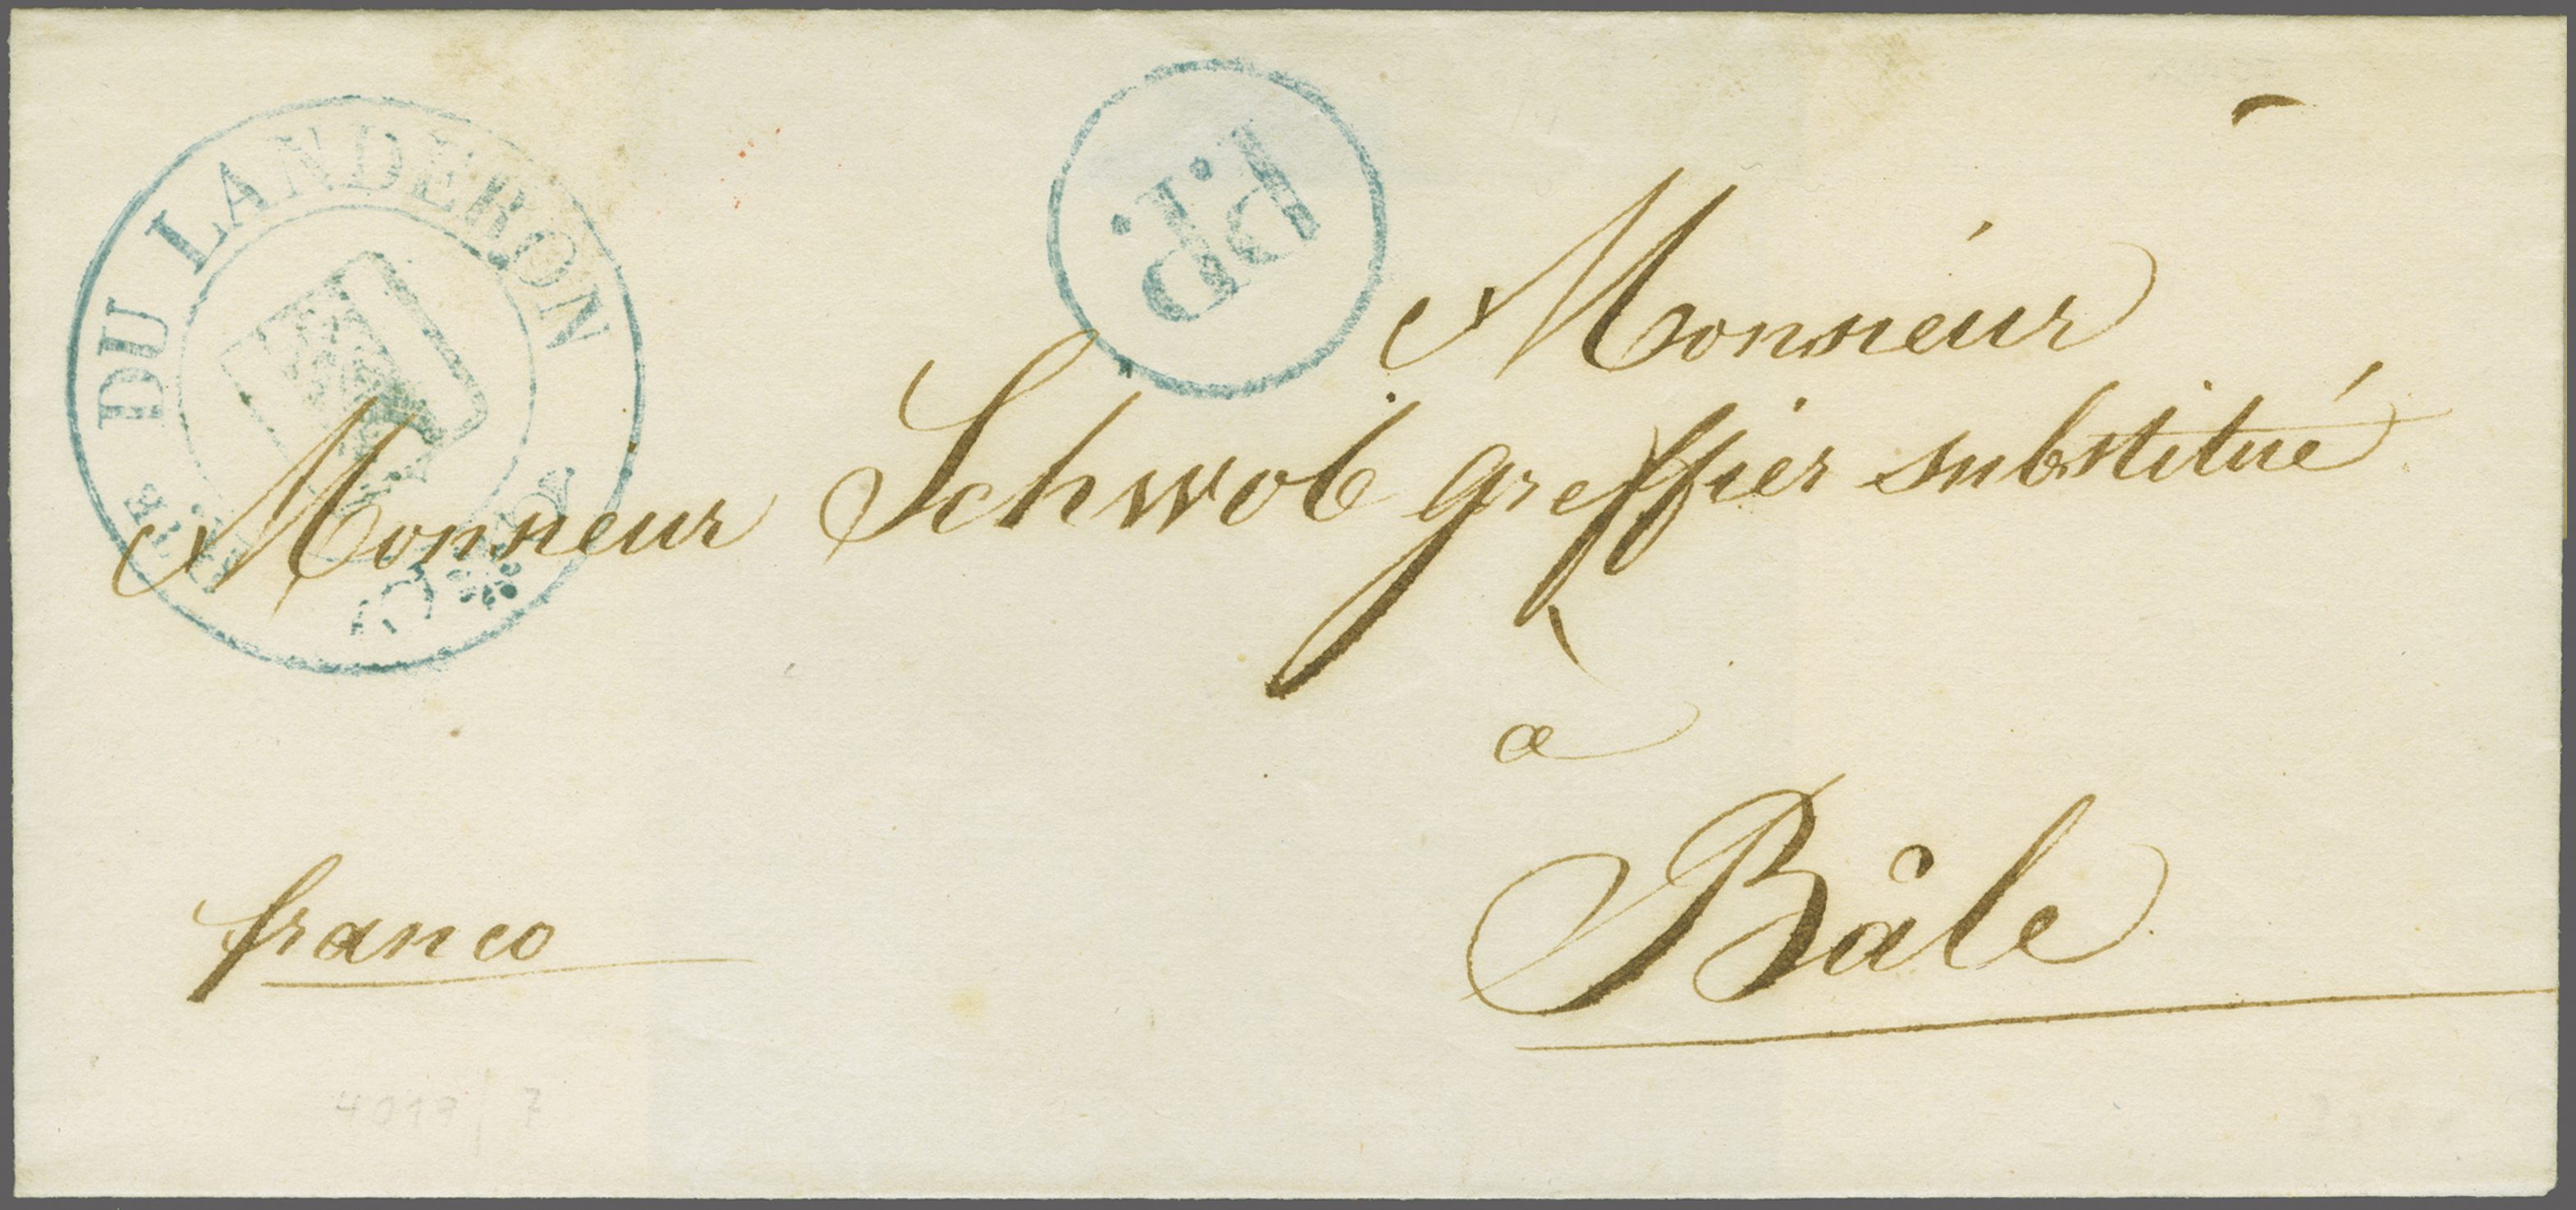 DU LANDERON
P.P.
Monsieur
Monsieur Schwob greffier substitué
a
Bâle
franco
4019/7